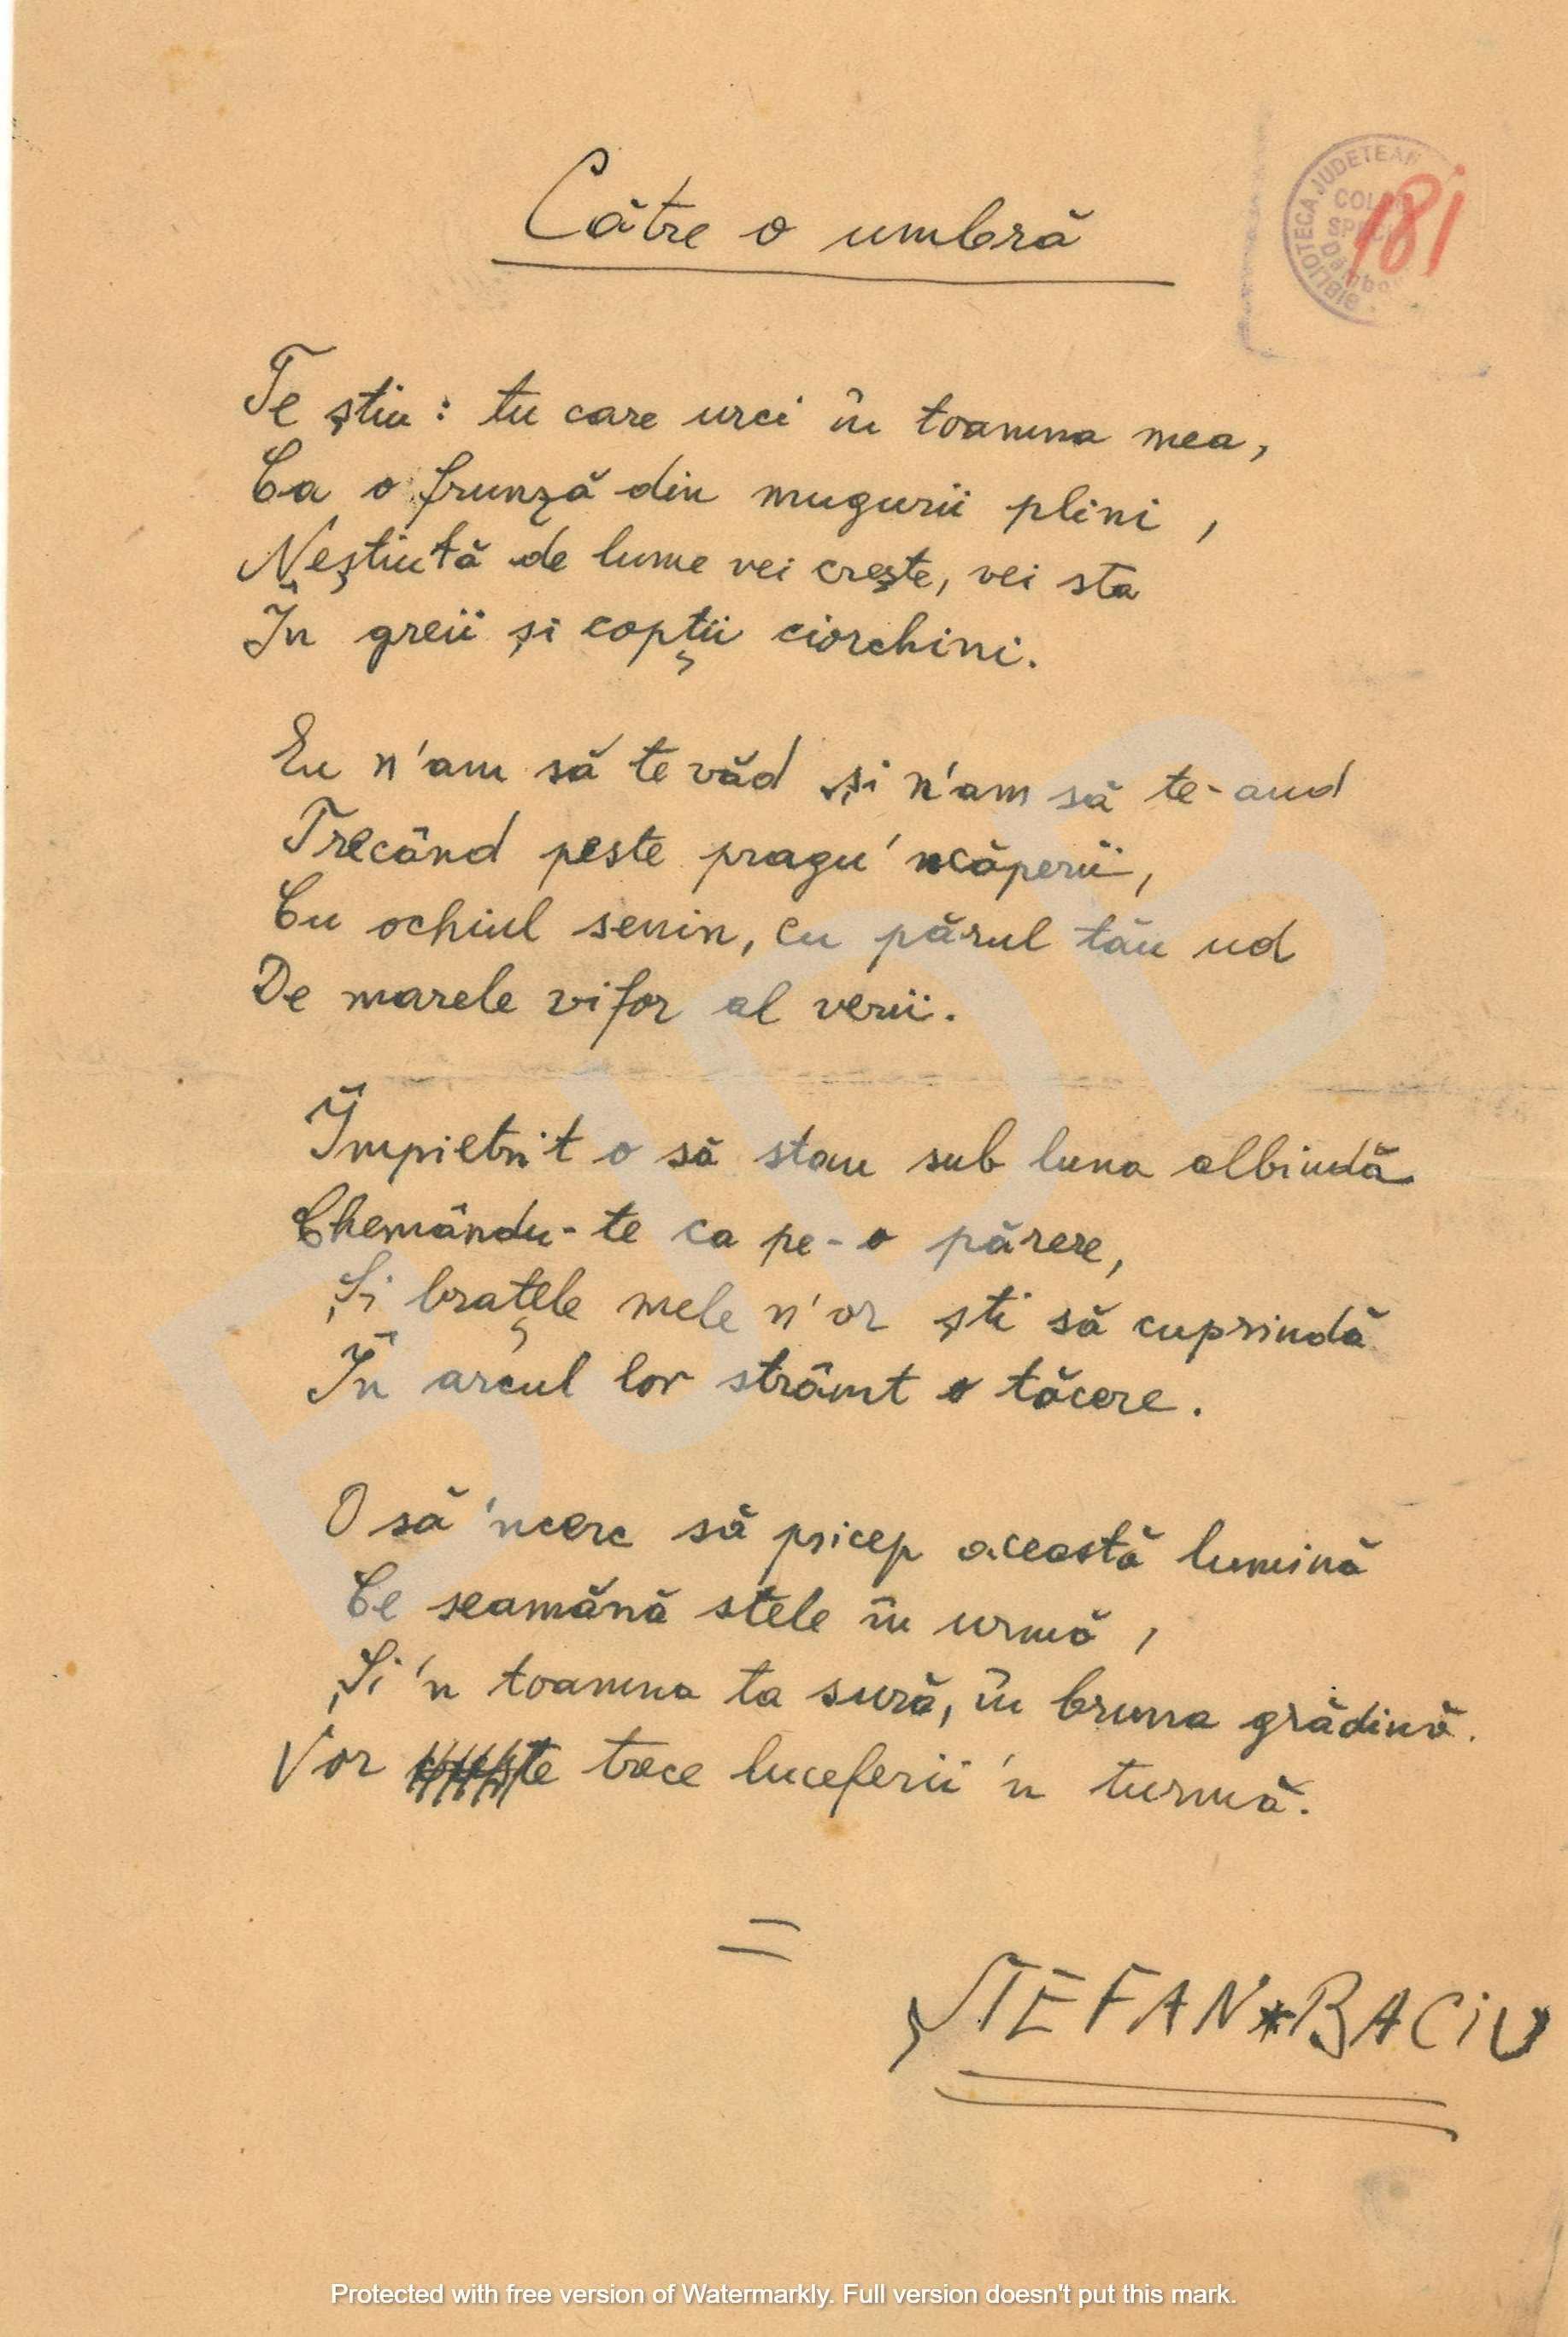 Către o umbră
BIBLIOTECA JUDEȚEAN
COL
SP
181
Te știu: tu care urci în toamna mea,
Ca o frunză din mugurii plini,
Neștiută de lume vei crește, vei sta
În greii și copții ciorchini.
Eu n'am să te văd și n'am să te-aud
Trecând peste pragu 'ncăperii,
Cu ochiul senin, cu părul tău ud
De marele vifor al verii.
Împietrit o să stau sub luna albindă
Chemându-te ca pe-o părere,
Și brațele mele n'or ști să cuprindă
În arcul lor strâmt o tăcere.
O să 'ncerc să pricep această lumină
Ce seamănă stele în urmă,
Și 'n toamna ta sură, în bruna grădină.
Vor trece luceferii 'n turmă.
=
ȘTEFAN*BACiU
BJDB
Protected with free version of Watermarkly. Full version doesn't put this mark.